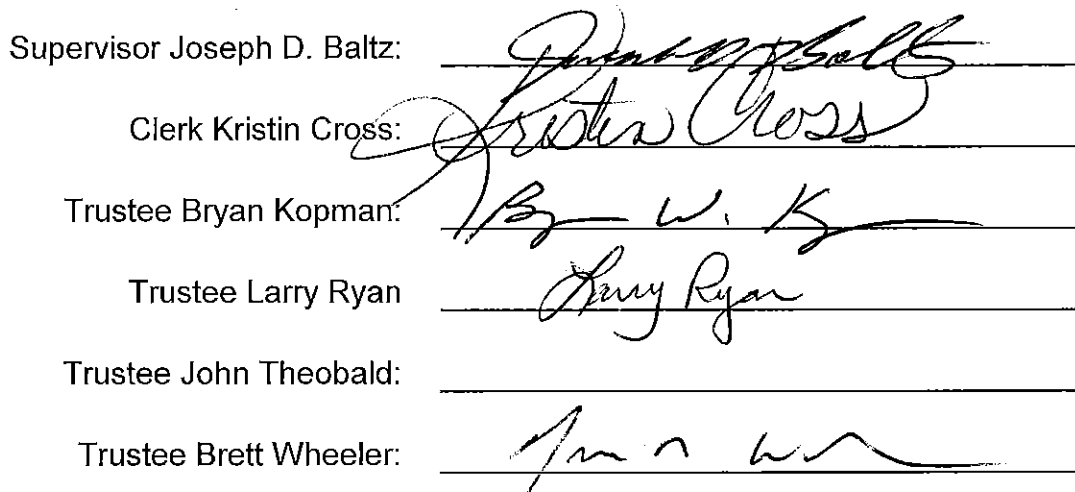 Supervisor Joseph D. Baltz: Joseph D. Baltz
Clerk Kristin Cross: Kristin Cross
Trustee Bryan Kopman: Bryan W. K
Trustee Larry Ryan Larry Ryan
Trustee John Theobald:
Trustee Brett Wheeler: